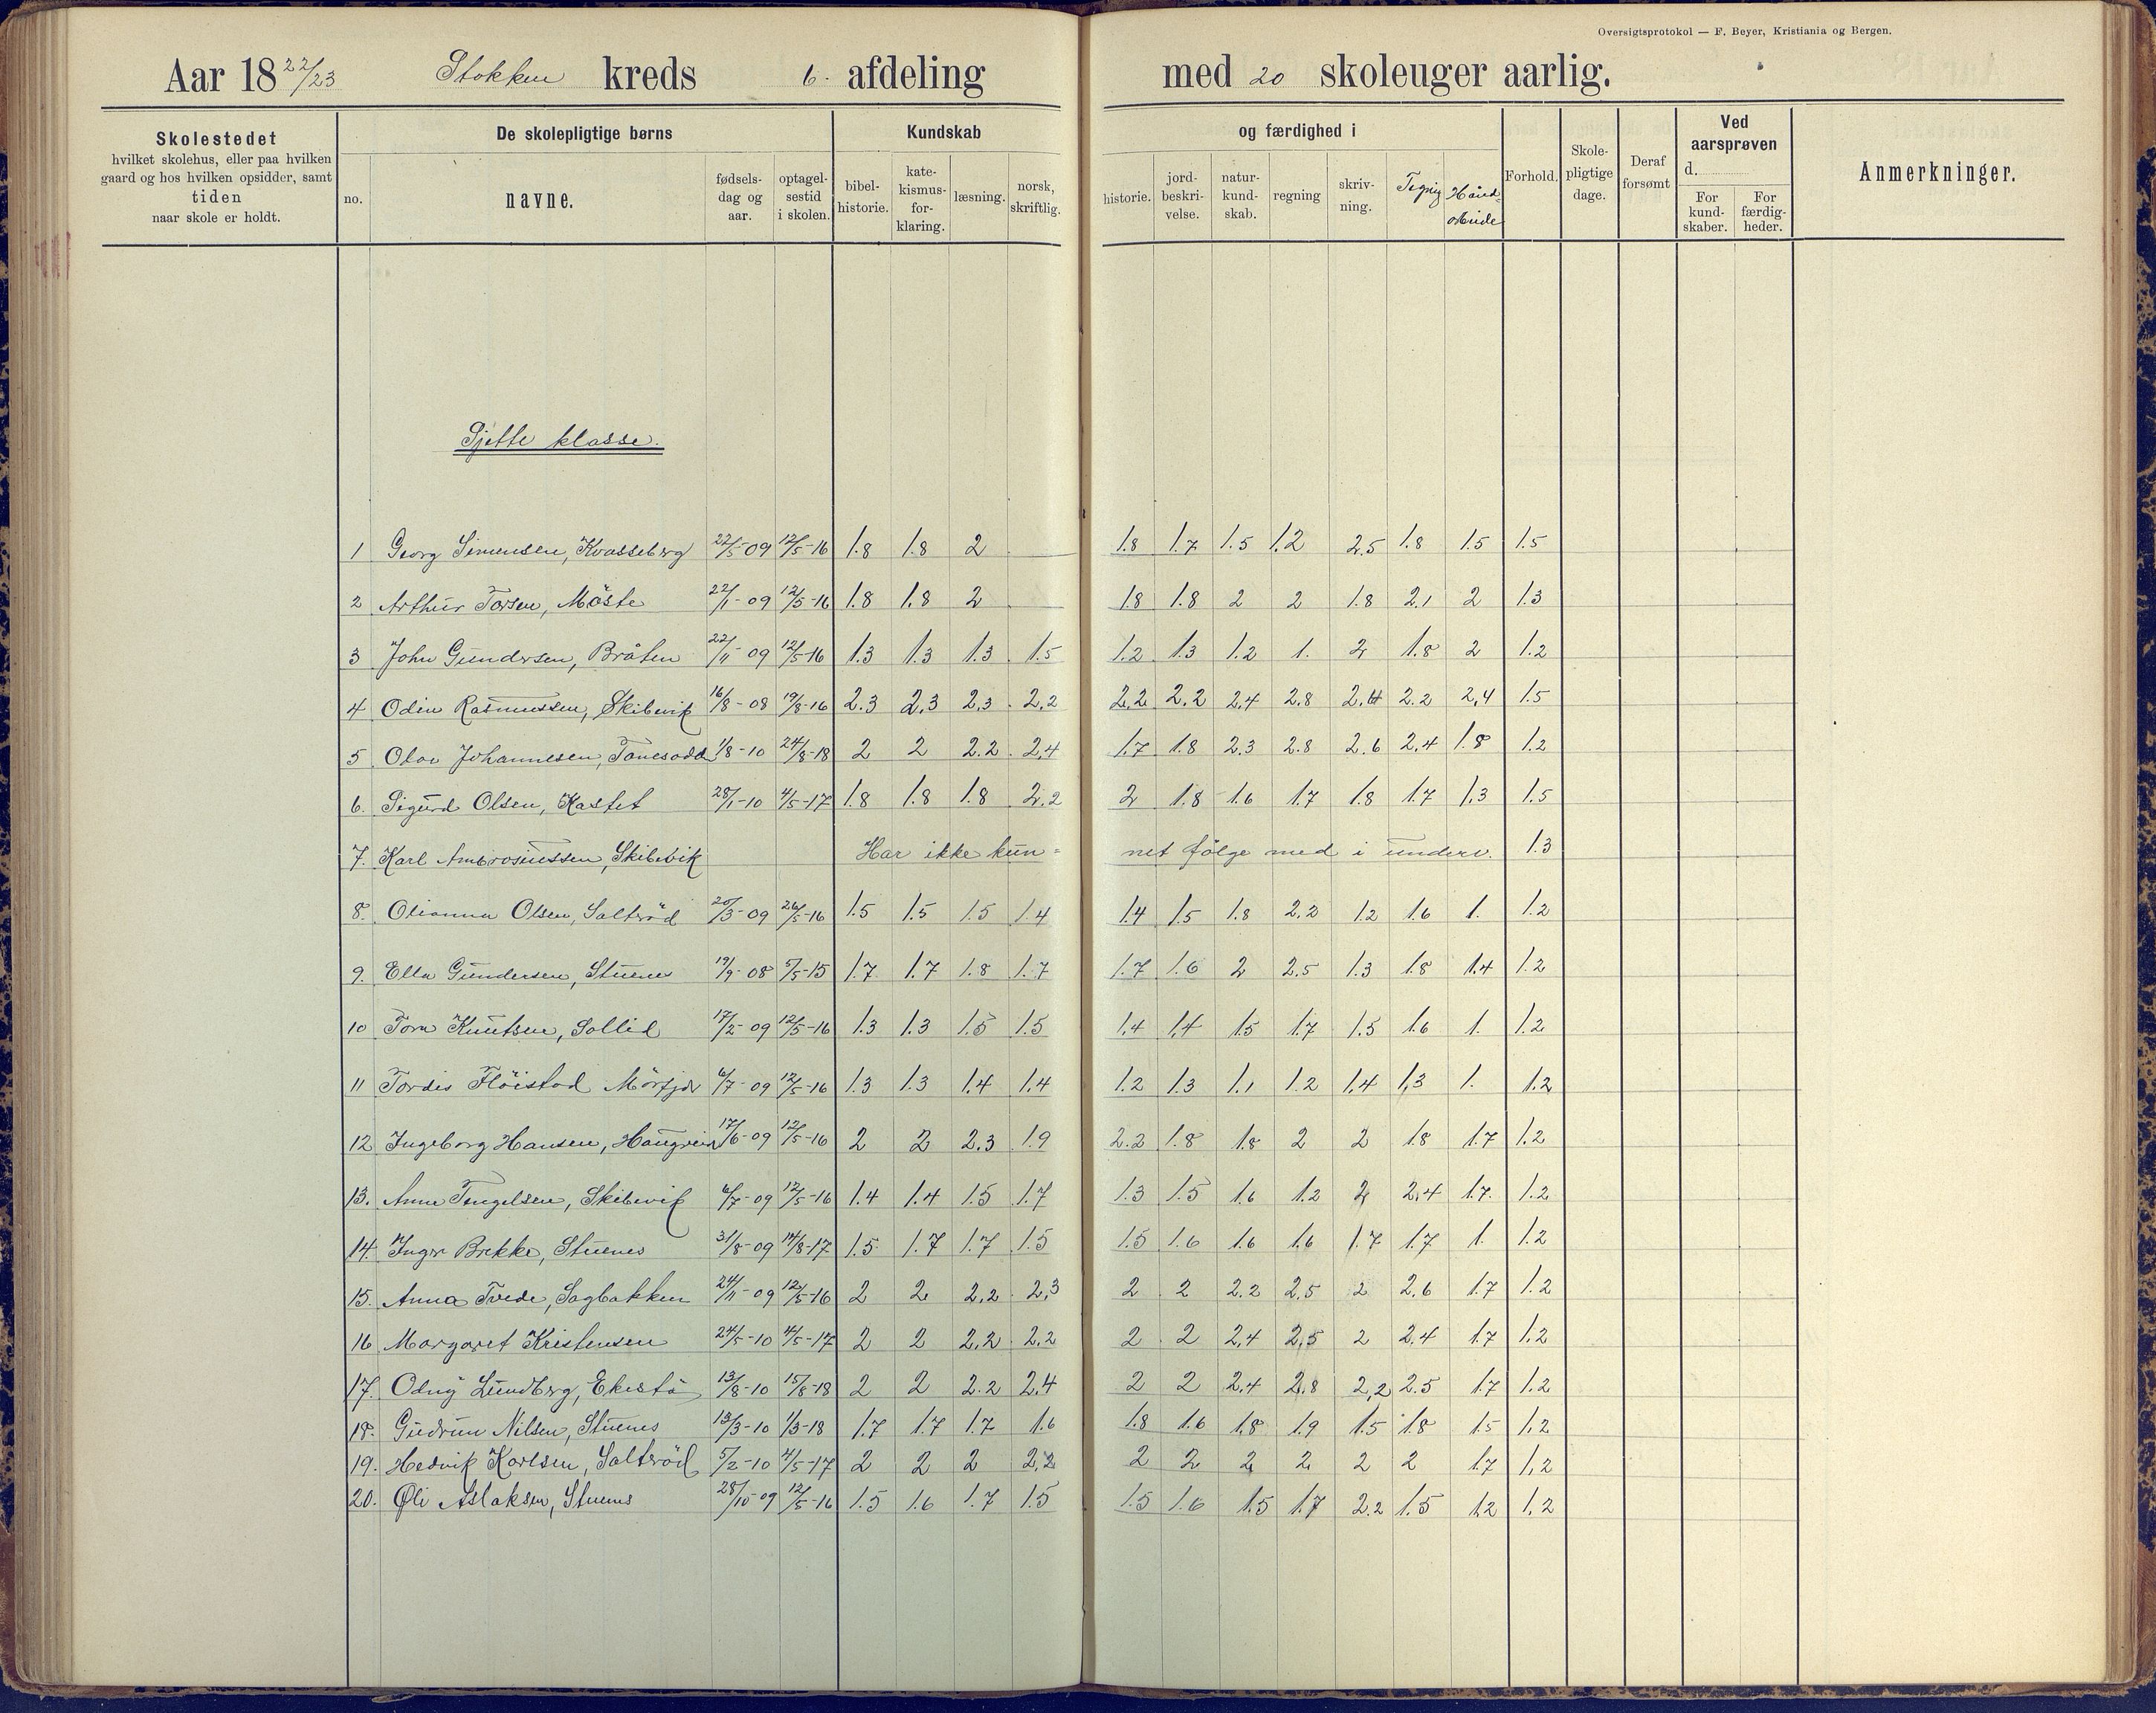 Oversigtsprotokol — F. Beyer, Kristiania og Bergen.
Aar 18 22/23 Stokken kreds 6. afdeling med 20 skoleuger aarlig.
Skolestedet
hvilket skolehus, eller paa hvilken
gaard og hos hvilken opsidder, samt
tiden
naar skole er holdt.
De skolepligtige børns
no.
navne.
fødsels-
dag og
aar.
optagel-
sestid
i skolen.
Kundskab
bibel-
historie.
kate-
kismus-
for-
klaring.
læsning.
norsk,
skriftlig.
og færdighed i
historie.
jord-
beskri-
velse.
natur-
kund-
skab.
regning
skriv-
ning.
Tegnig
Hånd-
arbeide
Forhold.
Skole-
pligtige
dage.
Deraf
forsømt
Ved
aarsprøven
d.
For
kund-
skaber.
For
færdig-
heder.
Anmerkninger.
Sjette klasse.
1 Georg Simensen, Kvasseberg 22/5-09 12/5-16 1.8 1.8 2 1.8 1.7 1.5 1.2 2.5 1.8 1.5 1.5
2 Arthur Torsen, Möste 22/1-09 12/5-16 1.8 1.8 2 1.8 1.8 2 2 1.8 2.1 2 1.3
3 John Gundersen, Bråten 22/11-09 12/5-16 1.3 1.3 1.3 1.5 1.2 1.3 1.2 1. 2 1.8 2 1.2
4 Odin Rasmussen, Skibevik 16/8-08 19/8-16 2.3 2.3 2.3 2.2 2.2 2.2 2.4 2.8 2.4 2.2 2.4 1.5
5 Olav Johannesen, Tanesodd 1/8-10 24/8-18 2 2 2.2 2.4 1.7 1.8 2.3 2.8 2.6 2.4 1.8 1.2
6. Sigurd Olsen, Kastet 28/1-10 4/5-17 1.8 1.8 1.8 2.2 2 1.8 1.6 1.7 1.8 1.7 1.3 1.5
7. Karl Ambrosiussen, Skibevik Har ikke kun= net følge med i underv. 1.3
8. Olianna Olsen, Saltröd 20/3-09 26/5-16 1.5 1.5 1.5 1.4 1.4 1.5 1.8 2.2 1.2 1.6 1. 1.2
9. Ella Gundersen, Stuenes 19/9-08 5/5-15 1.7 1.7 1.8 1.7 1.7 1.6 2 2.5 1.3 1.8 1.4 1.2
10 Tora Knutsen, Sollid 17/2-09 12/5-16 1.3 1.3 1.5 1.5 1.4 1.4 1.5 1.7 1.5 1.6 1. 1.2
11 Tordis Flöistad Mörfjær 6/7-09 12/5-16 1.3 1.3 1.4 1.4 1.2 1.3 1.1 1.2 1.4 1.3 1. 1.2
12 Ingeborg Hansen, Haugrein 17/6-09 12/5-16 2 2 2.3 1.9 2.2 1.8 1.8 2 2 1.8 1.7 1.2
13. Anne Tengelsen, Skibevik 6/7-09 12/5-16 1.4 1.4 1.5 1.7 1.3 1.5 1.6 1.2 2 2.4 1.7. 1.2
14. Inger Brekke, Stuenes 31/8-09 14/8-17 1.5 1.7 1.7 1.5 1.5 1.6 1.6 1.6 1.7 1.7 1. 1.2
15. Anna Tvede, Sagbakken 24/11-09 12/5-16 2 2 2.2 2.3 2 2 2.2 2.5 2 2.6 1.7 1.2
16 Margaret Kristensen 24/5-10 4/5-17 2 2 2.2 2.2 2 2 2.4 2.5 2 2.4 1.7 1.2
17. Odny Lundberg, Ekestö 13/8-10 15/8-18 2 2 2.2 2.4 2 2 2.4 2.8 2.2 2.5 1.7 1.2
18. Gudrun Nilsen, Stuenes 13/3-10 1/3-18 1.7 1.7 1.7 1.6 1.8 1.6 1.8 1.9 1.5 1.8 1.5 1.2
19. Hedvik Karlsen, Saltröd 5/2-10 4/5-17 2 2 2 2.2 2 2 2 2 2 2 1.7 1.2
20. Øli Aslaksen, Stuenes 28/10-09 12/5-16 1.5 1.6 1.7 1.5 1.5 1.6 1.5 1.7 2.2 1.5 1.2 1.2